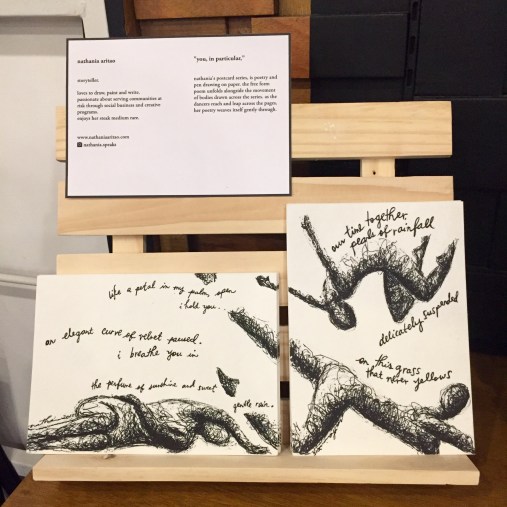 nathania aritao
storyteller.
loves to draw, paint and write.
passionate about serving communities at
risk through social business and creative
programs.
enjoys her steak medium rare.
www.nathaniaaritao.com
nathania.speaks
"you, in particular,"
nathania's postcard series, is poetry and
pen drawing on paper. the free form
poem unfolds alongside the movement
of bodies drawn across the series. as the
dancers reach and leap across the pages,
her poetry weaves itself gently through.
like a petal in my palm, open
i hold you.
an elegant curve of velvet paused.
i breathe you in
the perfume of sunshine and sweat
gentle rain.
our time together
pearls of rainfall
delicately suspended
on this grass
that never yellows